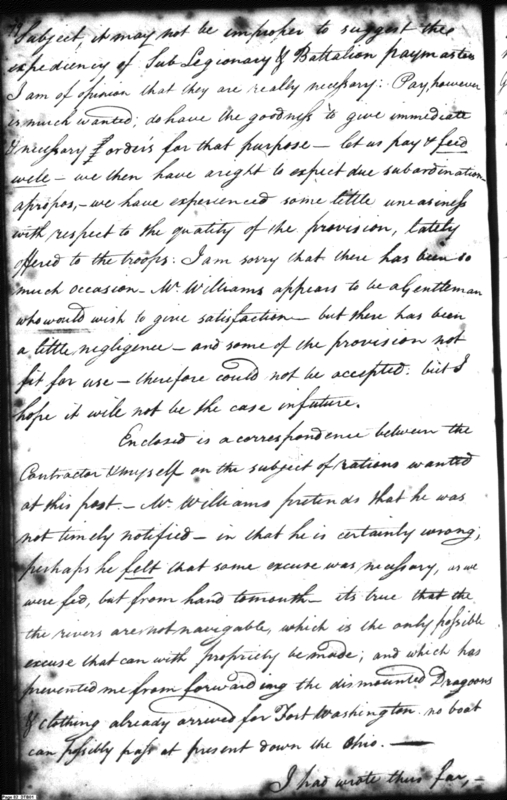 Subject, it may not be improper to suggest the
expediency of Sub Legionary & Battalion paymasters
I am of opinion that they are really necessary: Pay, however
is much wanted; do have the goodness to give immediate
& necessary orders for that purpose — let us pay & feed
well — we then have a right to expect due subordination —
apropos, — we have experienced some little uneasiness
with respect to the quality of the provision, lately
offered to the troops: I am sorry that there has been so
much occasion — Mr. Williams appears to be a Gentleman
who would wish to give satisfaction — but there has been
a little negligence — and some of the provision not
fit for use — therefore could not be accepted: but I
hope it will not be the case in future.
Enclosed is a correspondence between the
Contractor & myself on the subject of rations wanted
at this post. — Mr. Williams pretends that he was
not timely notified — in that he is certainly wrong;
perhaps he felt that some excuse was necessary, as we
were fed, but from hand to mouth — its true that the
the rivers are not navigable, which is the only possible
excuse that can with propriety be made; and which has
prevented me from forwarding the dismounted Dragoons
& clothing already arrived for Fort Washington. no boat
can possibly pass at present down the Ohio. —
I had wrote thus far, —